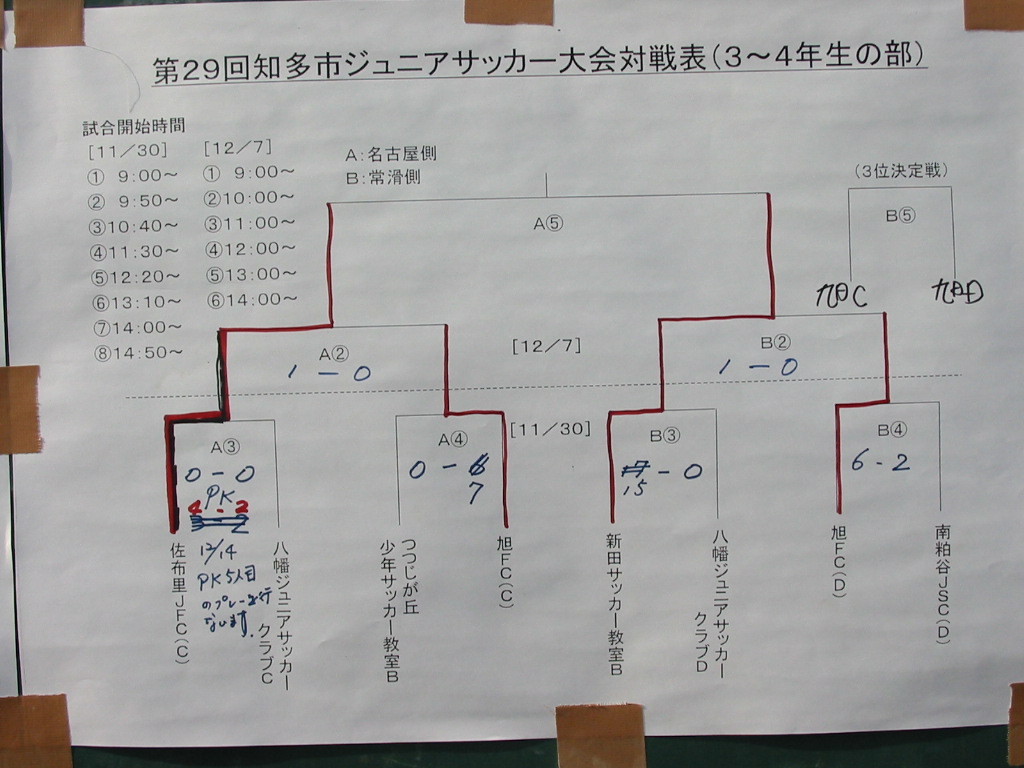 第29回知多市ジュニアサッカー大会対戦表(3~4年生の部)
試合開始時間
[11/30] [12/7]
① 9:00~ ① 9:00~
② 9:50~ ②10:00~
③10:40~ ③11:00~
④11:30~ ④12:00~
⑤12:20~ ⑤13:00~
⑥13:10~ ⑥14:00~
⑦14:00~
⑧14:50~
A:名古屋側
B:常滑側
(3位決定戦)
A⑤
B⑤
旭C 旭D
A② [12/7] B②
1-0 1-0
A③ A④ [11/30] B③ B④
0-0 0- 7 15 -0 6-2
PK
4-2
12/14
PK5人目
のプレーを行
ないます.
佐布里JFC(C)
八幡ジュニアサッカー
クラブC
つつじが丘
少年サッカー教室B
旭FC(C)
新田サッカー教室B
八幡ジュニアサッカー
クラブD
旭FC(D)
南粕谷JSC(D)